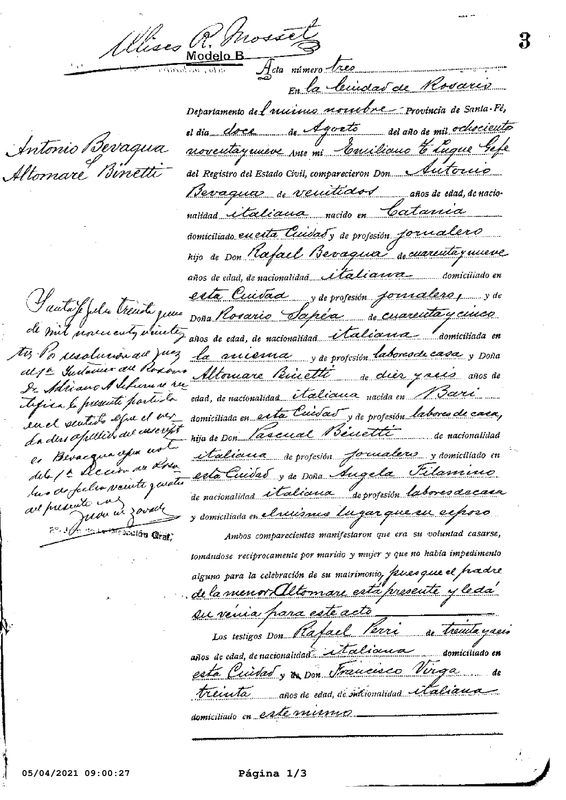 Ulises R. Mosset
3
Modelo B
Acta número tres
En la Ciudad de Rosario
Departamento del mismo nombre Provincia de Santa-Fé,
el día doce de Agosto del año de mil ochociento
noventa y nueve Ante mí Emiliano E Luque Gefe
del Registro del Estado Civil, comparecieron Don Antonio
Bevaqua de veintidos años de edad, de nacio-
nalidad italiana nacido en Catania
domiciliado en esta Ciudad y de profesión jornalero
hijo de Don Rafael Bevaqua de cuarenta y nueve
años de edad, de nacionalidad italiana domiciliado en
esta Ciudad y de profesión jornalero, y de
Doña Rosario Sapia de cuarenta y cinco
años de edad, de nacionalidad italiana domiciliada en
la misma y de profesión labores de casa y Doña
Altomare Binetti de diez y seis años de
edad, de nacionalidad italiana nacida en Bari
domiciliada en esta Ciudad y de profesión labores de casa,
hija de Don Pascual Binetti de nacionalidad
italiana de profesión jornalero y domiciliado en
esta Ciudad y de Doña Angela Filamino
de nacionalidad italiana de profesión labores de casa
y domiciliada en el mismo lugar que su esposo
Ambos comparecientes manifestaron que era su voluntad casarse,
tomándose recíprocamente por marido y mujer y que no había impedimento
alguno para la celebración de su matrimonio, pues que el padre
de la menor Altomare está presente y le dá
su vénia para este acto
Los testigos Don Rafael Perri de treinta y seis
años de edad, de nacionalidad italiana domiciliado en
esta Ciudad y Don Francisco Virga de
treinta años de edad, de nacionalidad italiana
domiciliado en este mismo
Antonio Bevaqua
Altomare Binetti
Santa Fe julio treinta
de mil novecientos veinte
tres Por resolucion del Juez
de 1ª del Rosario
Dr Adriano A
tifica la presente partida
en el sentido que el ver
dadero apellido del
es Bevacqua
de la 1ª Seccion de
julio veinte y cuatro
del presente
05/04/2021 09:00:27
Página 1/3